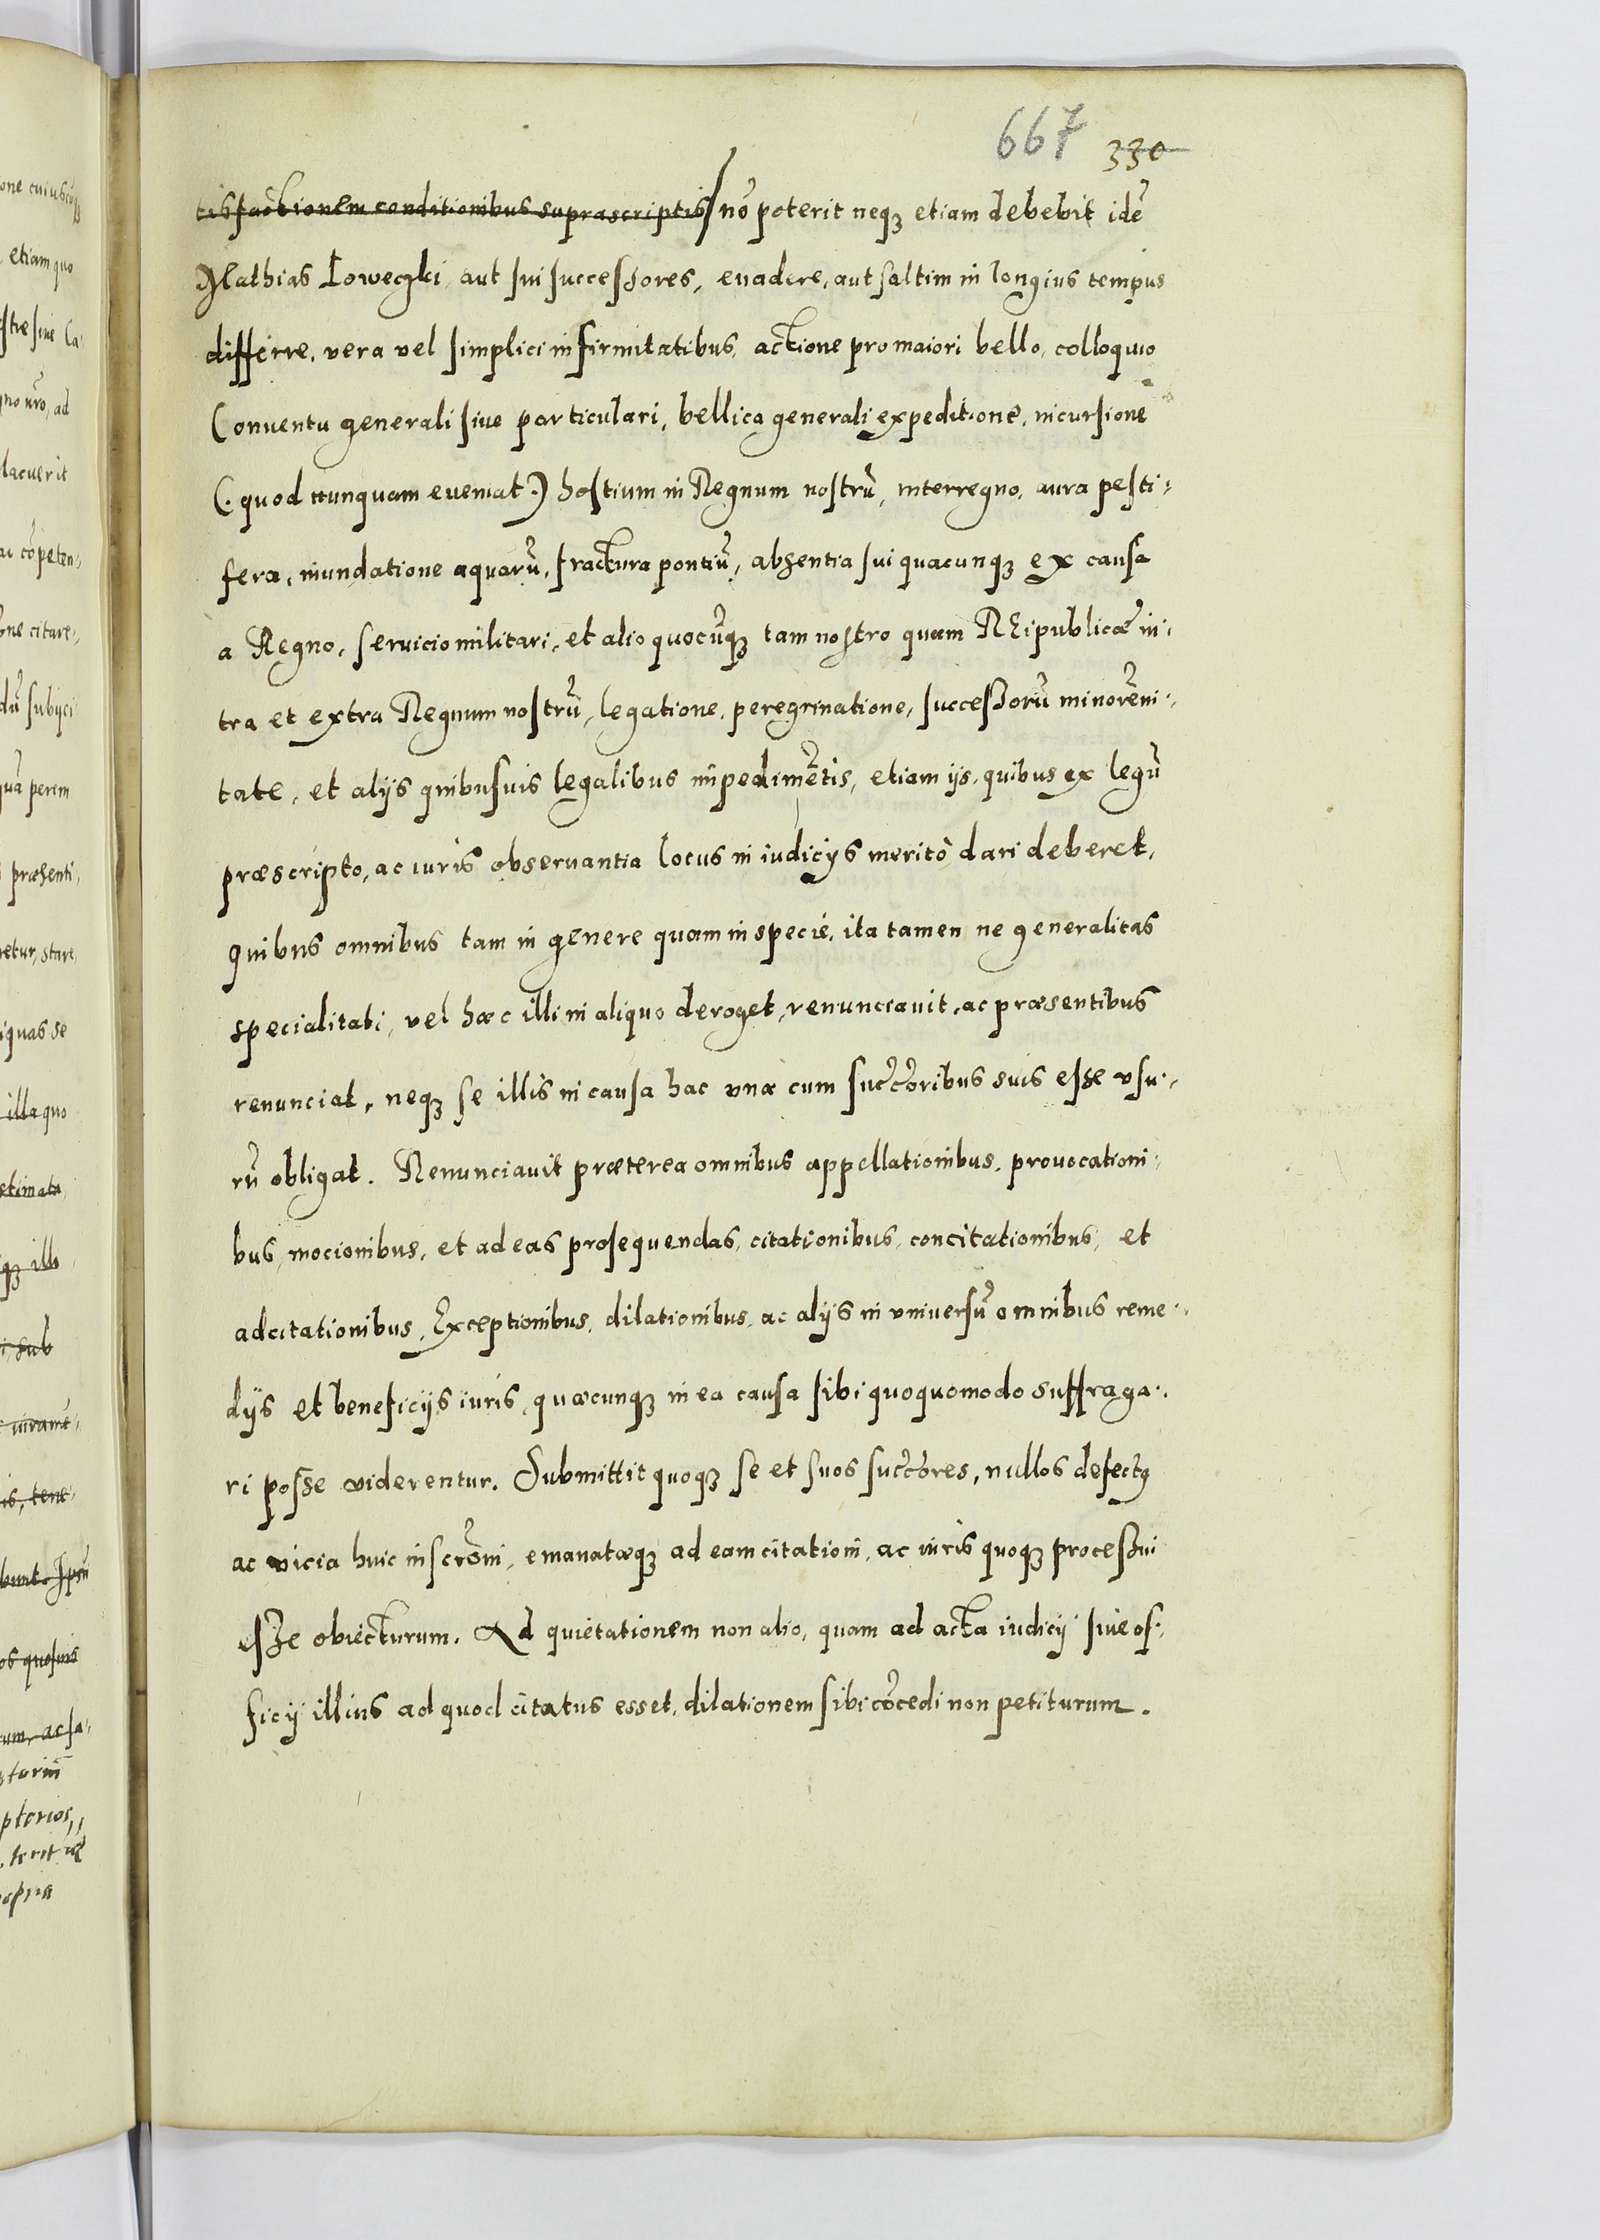 667 330
tisfactionem conditionibus suprascriptis/ nõ poterit neqꝫ etiam debebit idẽ
Mathias Loweczki, aut sui successores, euadere, aut saltim in longius tempus
differre, vera vel simplici infirmitatibus, actione pro maiori bello, colloquio
Conuentu generali siue particulari, bellica generali expeditione, incursione
(. quod nunquam eueniat .) hostium in Regnum nostrũ, interregno, aura pesti-
fera, inundatione aquarũ, fractura pontiũ, absentia sui quacunqꝫ ex causa
a Regno, seruicio militari, et alio quocũqꝫ tam nostro quam REipublicæ in-
tra et extra Regnum nostrũ, legatione, peregrinatione, successorũ minorẽni-
tate, et alijs quibusuis legalibus impedimẽtis, etiam ijs, quibus ex legũ
præscripto, ac iuris obseruantia locus in iudicijs meritò dari deberet,
quibus omnibus tam in genere quam in specie, ita tamen ne generalitas
specialitati, vel hæc illi in aliquo deroget, renunciauit, ac præsentibus
renunciat, neqꝫ se illis in causa hac vna cum succ̃oribus suis esse vsu-
rũ obligat. Renunciauit præterea omnibus appellationibus, prouocationi-
bus, mocionibus, et ad eas prosequendas, citationibus, concitationibus, et
adcitationibus, Exceptionibus, dilationibus, ac alijs in vniuersũ omnibus reme-
dijs et beneficijs iuris, quæcunqꝫ in ea causa sibi quoquomodo suffraga-
ri posse viderentur. Submittit quoqꝫ se et suos succ̃ores, nullos defectꝰ
ac vicia huic inscrõni, emanatæqꝫ ad eam citationi, ac iuris quoqꝫ processui
esse obiecturum. Ad quietationem non alio, quam ad acta iudicij siue of-
ficij illius ad quod citatus esset, dilationem sibi cõcedi non petiturum.